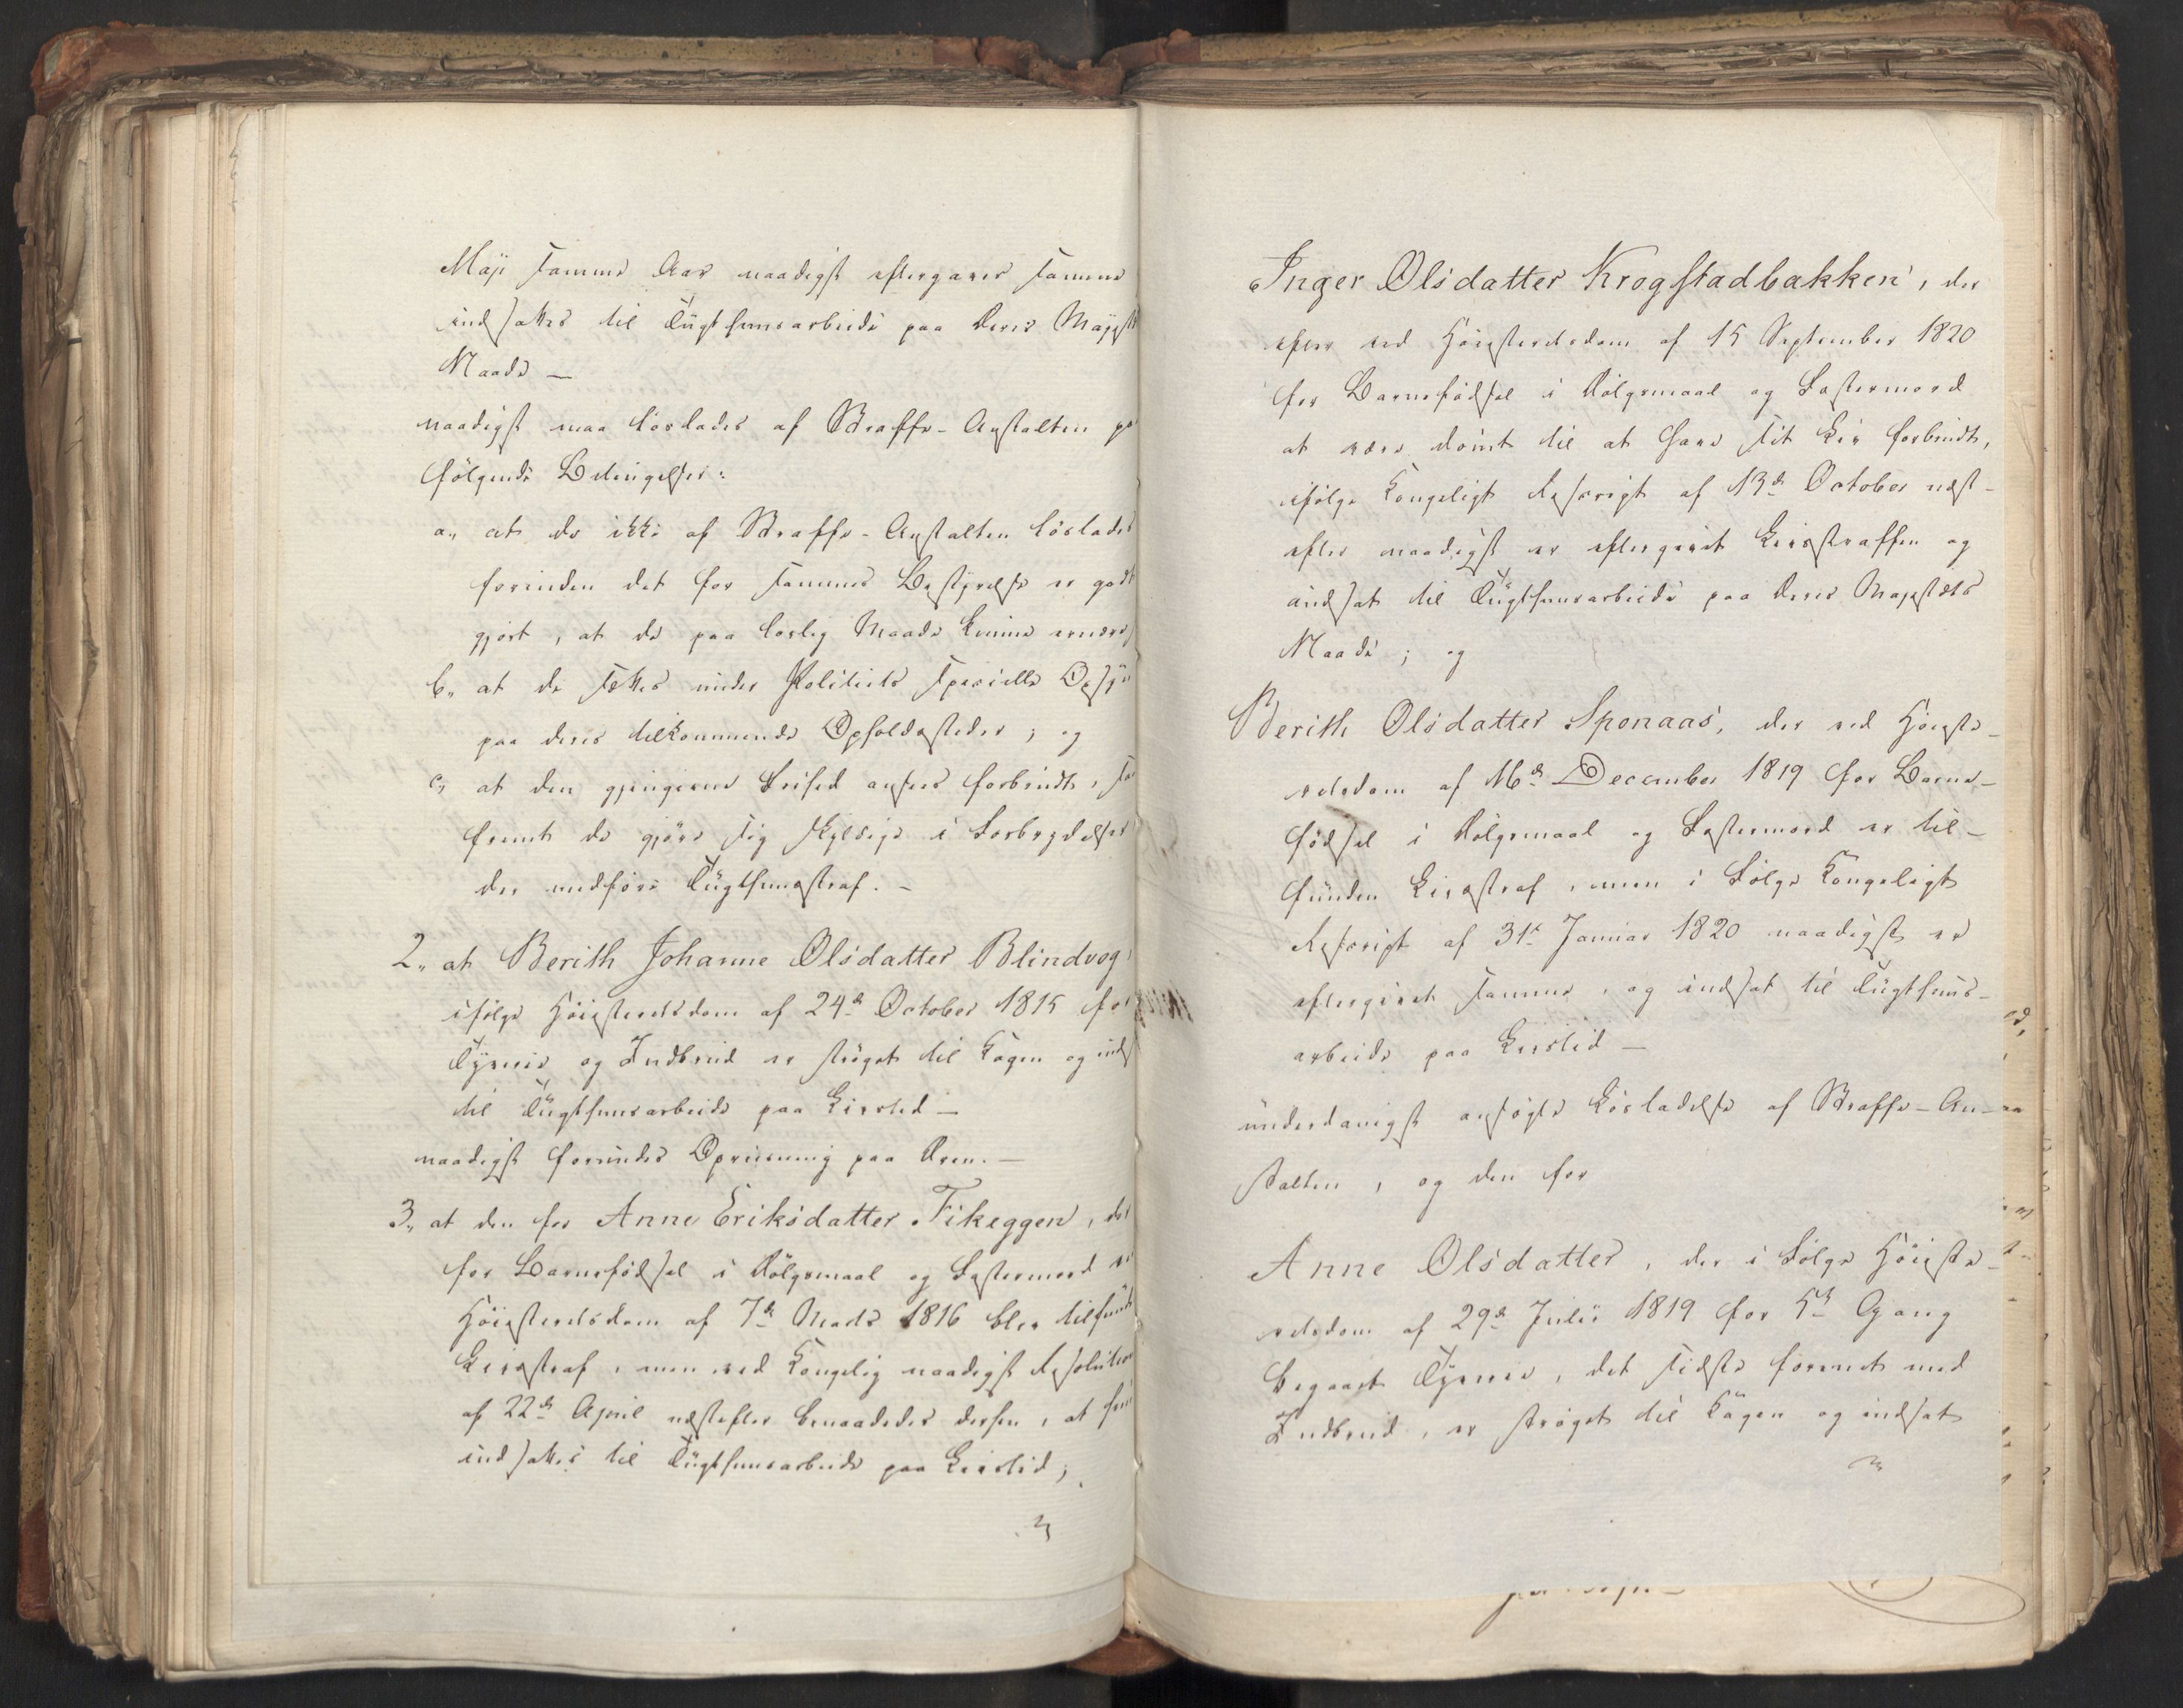 Maji samme Aar naadigst eftergaves samme
indsattes til Tugthuusarbeide paa Deres Majest
Naade —
naadigst maa løslades af Straffe-Anstalten på
følgende Betingelser:
a., at de ikke af Straffe-Anstalten løslades
forinden det for sammes Bestyrelse er godt
gjort, at de paa lovlig Maade kunne ernære
b., at de sættes under Politiets specielle Opsyn
paa deres tilkommende Opholdssteder; og
c, at den gjengivne Frihed ansees forbrudt, saa
fremt de gjøre sig skyldige i Forbrydelser
der medføre Tugthuusstraf. –
2., at Berith Johanne Olsdatter Blindvog,
ifølge Høiesteretsdom af 24de October 1815 for
Tyverie og Indbrud er strøget til Kagen og inds
til Tugthuusarbeide paa Livstid —
naadigst forundes Opreisning paa Æren. —
3., at den for Anne Eriksdatter Fikeggen, der
for Barnefødsel i Dølgsmaal og Fostermord ved
Høiesteretsdom af 7de Marts 1816 blev tilfunde
Livsstraf, men ved Kongelig naadigst Resolution
af 22de April næstefter benaadedes derhen, at hun
indsattes til Tugthuusarbeide paa Livstid;
Inger Olsdatter Krogstadbakken, der
efter ved Høiesteretsdom af 15 September 1820
for Barnefødsel i Dølgsmaal og Fostermord
at være dømt til at have sit Liv forbrudt,
ifølge Kongeligt Rescript af 13de October næst-
efter naadigst er eftergivet Livsstraffen og
indsat til Tugthuusarbeide paa Deres Majestæts
Naade; og
Berith Olsdatter Sponaas, der ved Høieste-
retsdom af 16de December 1819 for Barne-
fødsel i Dølgsmaal og Fostermord er til-
funden Livsstraf, men i Følge Kongeligt
Rescript af 31te Januar 1820 naadigst er
eftergivet samme, og indsat til Tugthuus-
arbeide paa Livstid —
underdanigst ansøgte Løsladelse af Straffe-An-
stalten, og den for
Anne Olsdatter, der i Følge Høieste-
retsdom af 29de Julii 1819 for 5te Gang
begaaet Tyverie, det sidste forenet med
Indbrud, er strøget til Kagen og indsat